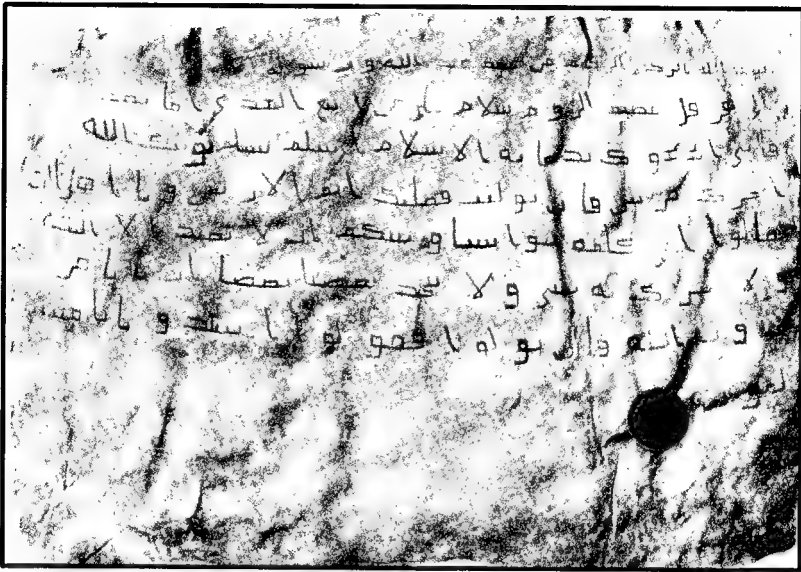 الرحمن من محمد عبد الله ورسوله
الى هرقل عظيم الروم سلام على من اتبع الهدى اما بعد
فانى ادعوك بدعاية الاسلام اسلم تسلم يوتك الله
اجرك مرتين فان توليت فعليك اثم ويا اهل
تعالوا الى كلمة سوا بيننا وبينكم ان لا نعبد الا الله
ولا نشرك به ولا يتخذ بعضنا بعضا اربابا من
دون الله فان تولوا فقولوا اشهدوا بانا